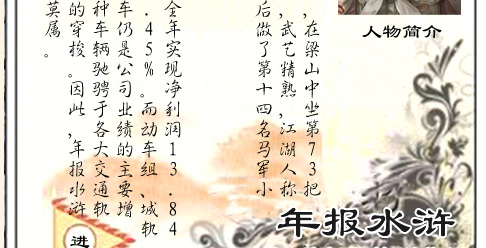 人物简介
,在梁山中坐第73把
,武艺精熟,江湖人称
后做了第十四名马军小
全年实现净利润13.84
.45%。而动车组、城轨
车仍是公司业绩的主要增
种车辆驰骋于各大交通轨
的穿梭。因此,年报水浒
莫属。
年报水浒
进